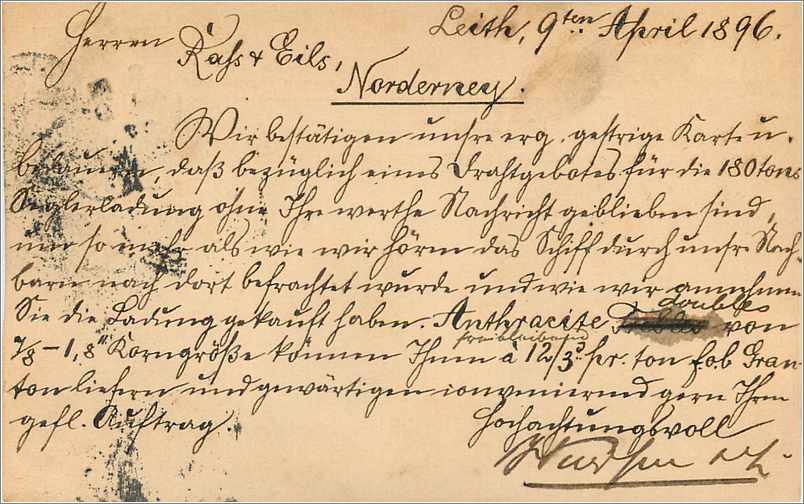 Leith, 9ten April 1896.
Herren
Rass & Eils,
Norderney.
Wir bestätigen unsre erg. gestrige Karte u.
bedauern, daß bezüglich eines Drahtgebotes für die 180 tons
Seglerladung ohne Ihre werthe Nachricht geblieben sind,
um so mehr als wie wir hören das Schiff durch unsre Nach-
barn nach dort befrachtet wurde und wie wir annehmen
Sie die Ladung gekauft haben. Anthracite doubles von
7/8 – 1,8" Korngröße können Ihnen freibleibend à 12/3d pr. ton fob Gran-
ton liefern und gewärtigen convenierend gern Ihren
gefl. Auftrag.
Hochachtungsvoll